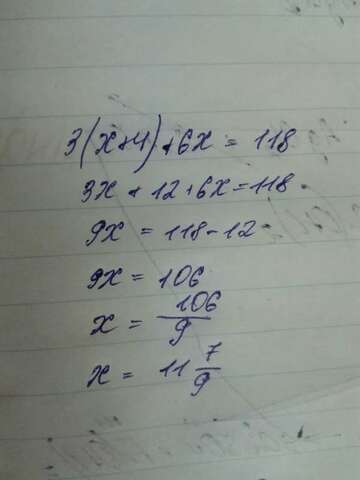 3(x+4)+6x = 118
3x + 12 + 6x = 118
9x = 118 - 12
9x = 106
x = 106/9
x = 11 7/9